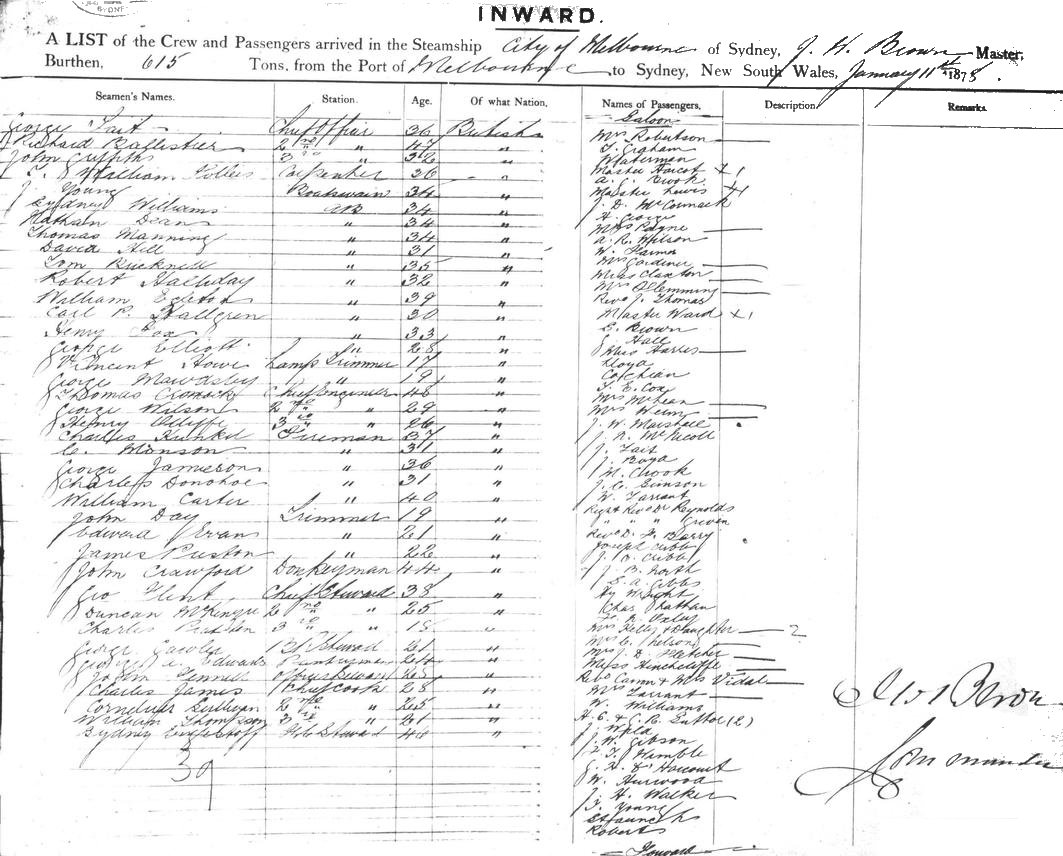 SYDNEY
INWARD.
A LIST of the Crew and Passengers arrived in the Steamship City of Melbourne of Sydney, J. H. Brown Master,
Burthen, 615 Tons, from the Port of Melbourne to Sydney, New South Wales, January 11th 1875.
Seamen's Names. Station. Age. Of what Nation, Names of Passengers, Description. Remarks.
Saloon
George Tait Chief Officer 36 British
Richard Ballistier 2nd " 47 "
John Griffiths 3rd " 32 "
William Carpenter 36 "
J. Young Boatswain 34 "
Sydney Williams AB 34 "
Nathan Dean " 34 "
Thomas Manning " 34 "
David Hill " 31 "
Tom Bucknell " 35 "
Robert Halliday " 32 "
William " 39 "
Carl P. Hallgren " 30 "
Henry Fox " 33 "
George Elliott " 28 "
Vincent Howe Lamp Trimmer 17 "
George Mawdsley " 19 "
Thomas Chief Engineer 48 "
George Wilson 2nd " 29 "
Henry 3rd " 26 "
Charles Kunkel Fireman 37 "
C. Monson " 31 "
George Jamieson " 36 "
Charles Donohoe " 31 "
William Carter " 40 "
John Day Trimmer 19 "
Edward Evans " 21 "
James " 22 "
John Crawford Donkeyman 44 "
Geo Flent Chief Steward 38 "
Duncan McKenzie 2nd " 25 "
Charles 3rd " 18 "
George Steward 21 "
George A. Edwards Pantryman 24 "
John 25 "
Charles James Chief Cook 28 "
Cornelius Sullivan 2nd " 25 "
William Thompson 3rd " 21 "
Sydney Steward "
39
Mrs Robertson
T. Graham
Waterman
Master + 1
A. C. Brook
Master Lewis + 1
J. D. McCormack
H. George
Mrs Payne
A. R. Wilson
W. Farmer
Mrs Gardiner
Miss Claxton
Mrs Flemming
Revd J. Thomas
Master Ward + 1
E. Brown
G. Hall
Miss Harris
Lloyd
Cochran
T. E. Cox
Mrs McLean
Mrs
J. W. Marshall
J. N. McNicoll
J. Tait
J. Boyd
M. Crook
J. C. Simson
W. Tarrant
Right Revd Dr Reynolds
" " "
Revd D. F. Barry
Joseph Cubb
J. B. Cubb
J. B. North
S. A. Gibbs
Hy Wright
Chas Chatham
Oxley
Mrs Kelly & Daughter 2
Mrs C. Nelson
Mrs J. D. Fletcher
Miss Hinchcliffe
Revd Canon & Mrs Vidal
Mrs Tarrant
W. Williams
H. E. & G. B. (2)
J.
J. W. Gibson
Wimble
G. Harcourt
W. Hurwood
J. H. Walker
T. Young
Staunch
Roberts
Forward
Brown
Commander